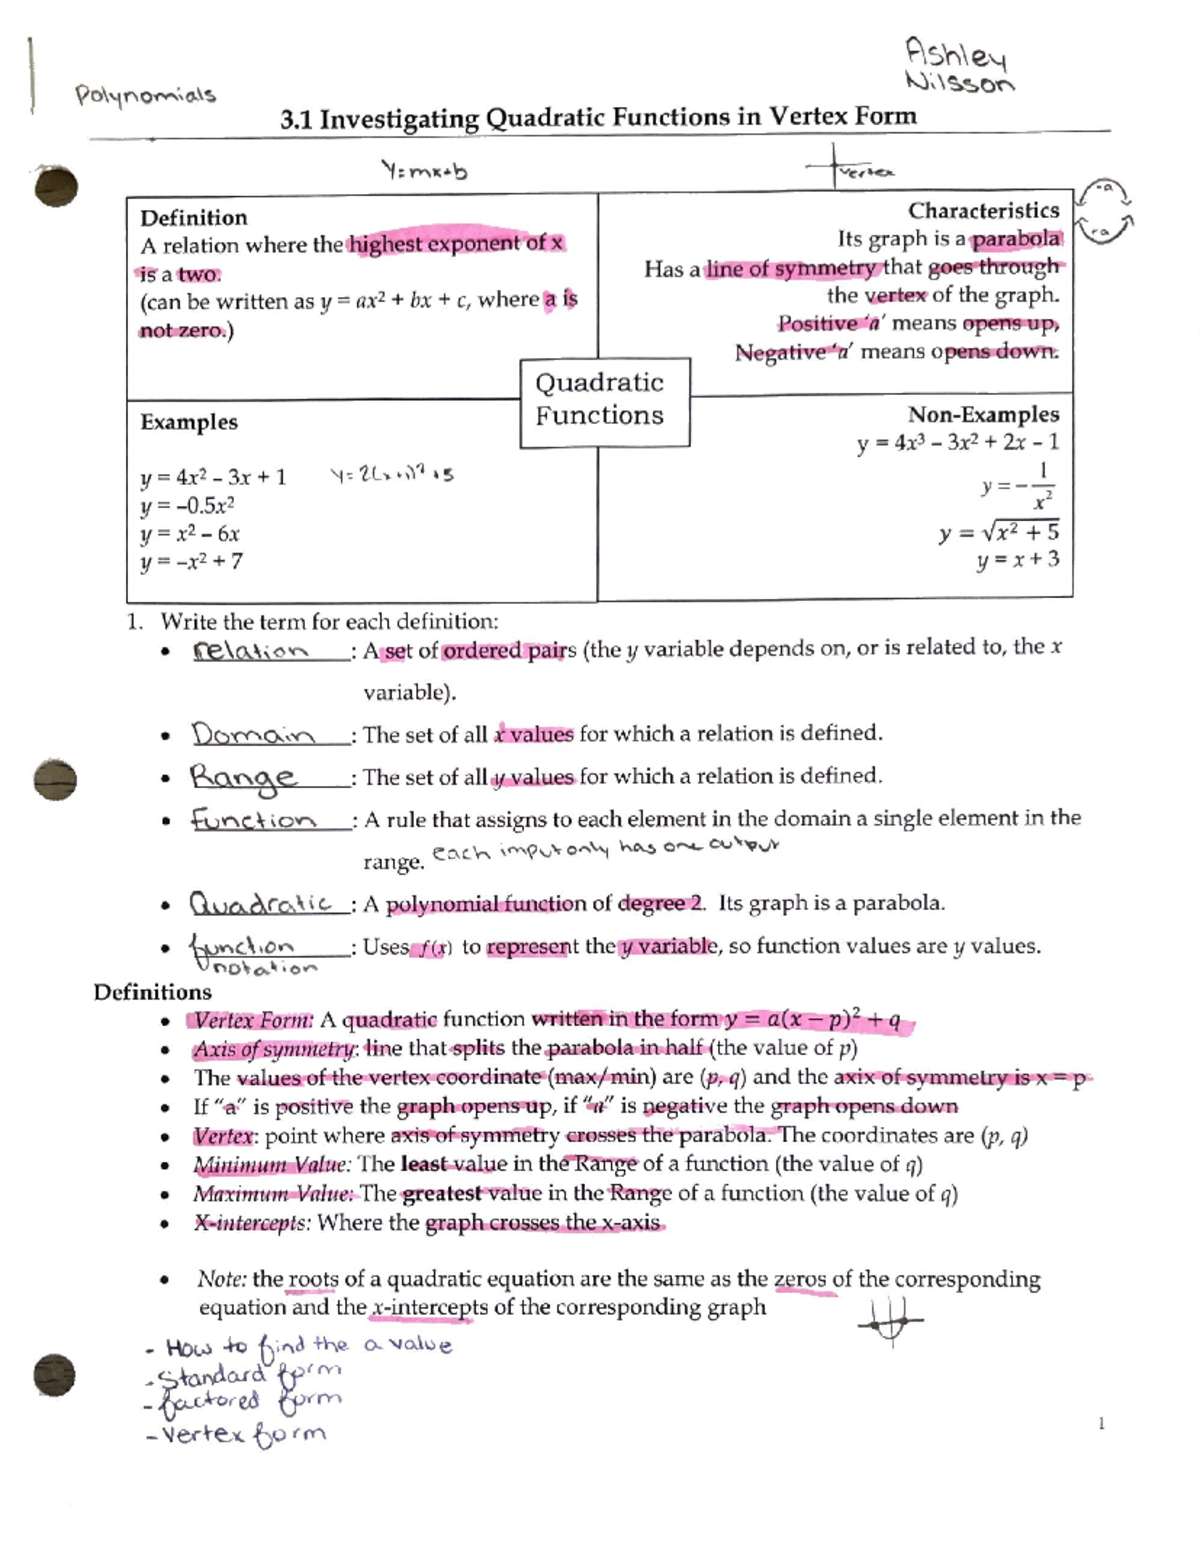 Ashley
Nilsson
Polynomials
3.1 Investigating Quadratic Functions in Vertex Form
y=mx+b
vertex
-a
+a
Definition
A relation where the highest exponent of x
is a two.
(can be written as y = ax² + bx + c, where a is
not zero.)
Characteristics
Its graph is a parabola
Has a line of symmetry that goes through
the vertex of the graph.
Positive 'a' means opens up,
Negative 'a' means opens down.
Quadratic
Functions
Examples
y = 4x² – 3x + 1 y=2(x+1)²+5
y = –0.5x²
y = x² – 6x
y = –x² + 7
Non-Examples
y = 4x³ – 3x² + 2x – 1
y = – 1/x²
y = √x² + 5
y = x + 3
1. Write the term for each definition:
• relation : A set of ordered pairs (the y variable depends on, or is related to, the x
variable).
• Domain : The set of all x values for which a relation is defined.
• Range : The set of all y values for which a relation is defined.
• Function : A rule that assigns to each element in the domain a single element in the
range. each imput only has one output
• Quadratic : A polynomial function of degree 2. Its graph is a parabola.
• function : Uses f(x) to represent the y variable, so function values are y values.
notation
Definitions
• Vertex Form: A quadratic function written in the form y = a(x – p)² + q
• Axis of symmetry: line that splits the parabola in half (the value of p)
• The values of the vertex coordinate (max/min) are (p, q) and the axix of symmetry is x = p
• If "a" is positive the graph opens up, if "a" is negative the graph opens down
• Vertex: point where axis of symmetry crosses the parabola. The coordinates are (p, q)
• Minimum Value: The least value in the Range of a function (the value of q)
• Maximum Value: The greatest value in the Range of a function (the value of q)
• X-intercepts: Where the graph crosses the x-axis
• Note: the roots of a quadratic equation are the same as the zeros of the corresponding
equation and the x-intercepts of the corresponding graph
- How to find the a value
- Standard form
- factored form
- Vertex form
1